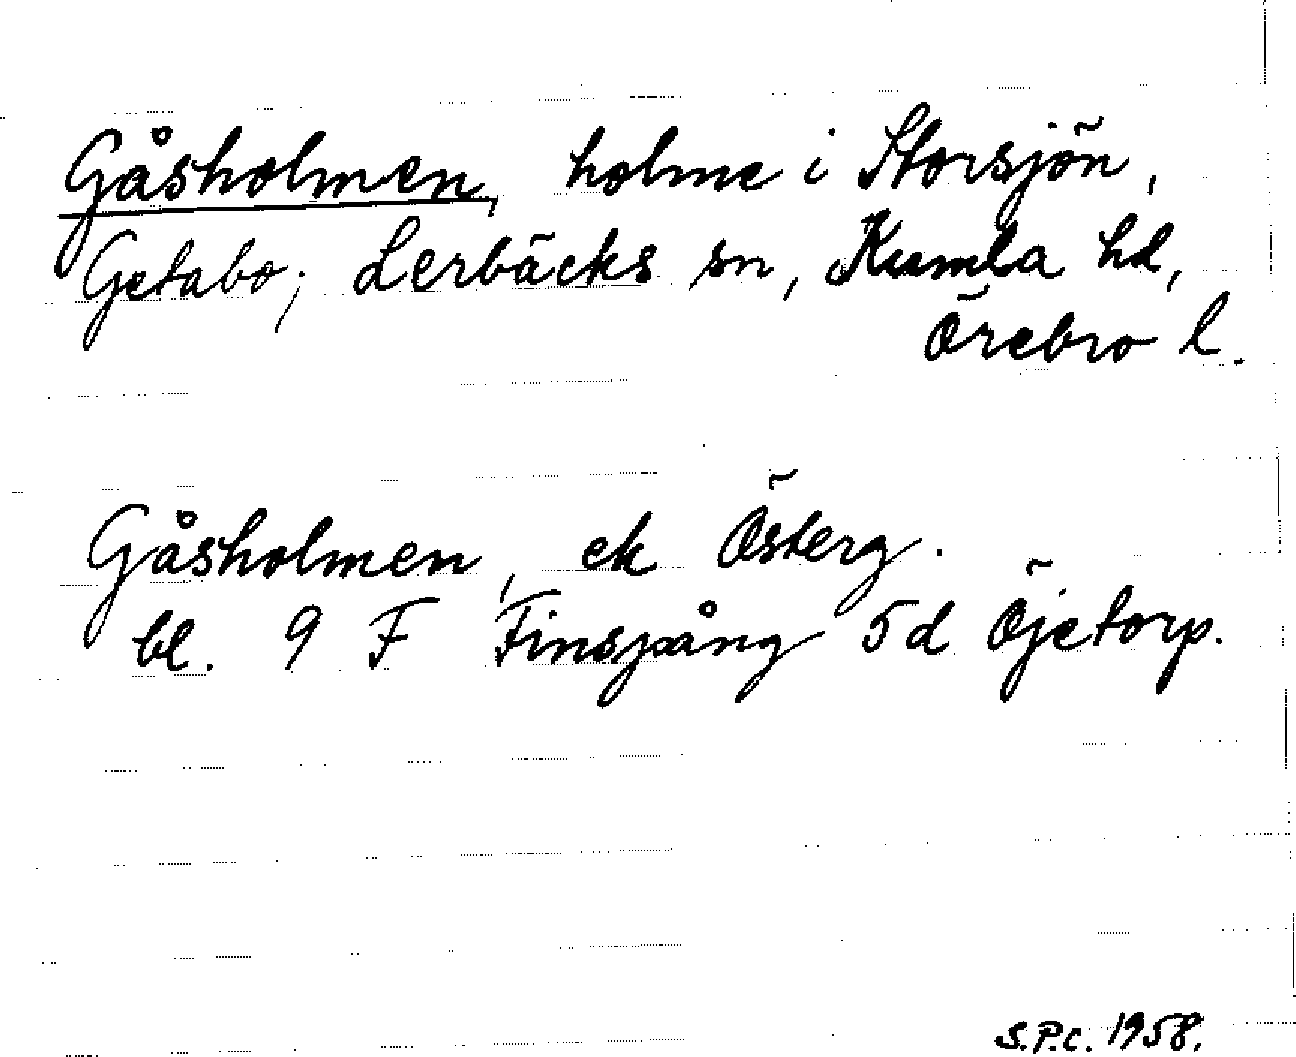 Gåsholmen, holme i Storsjön,
Getabo; Lerbäcks sn, Kumla hd,
Örebro l.
Gåsholmen, ek Österg.
bl. 9 F Finspång 5d Öjetorp.
S.P.C. 1958.